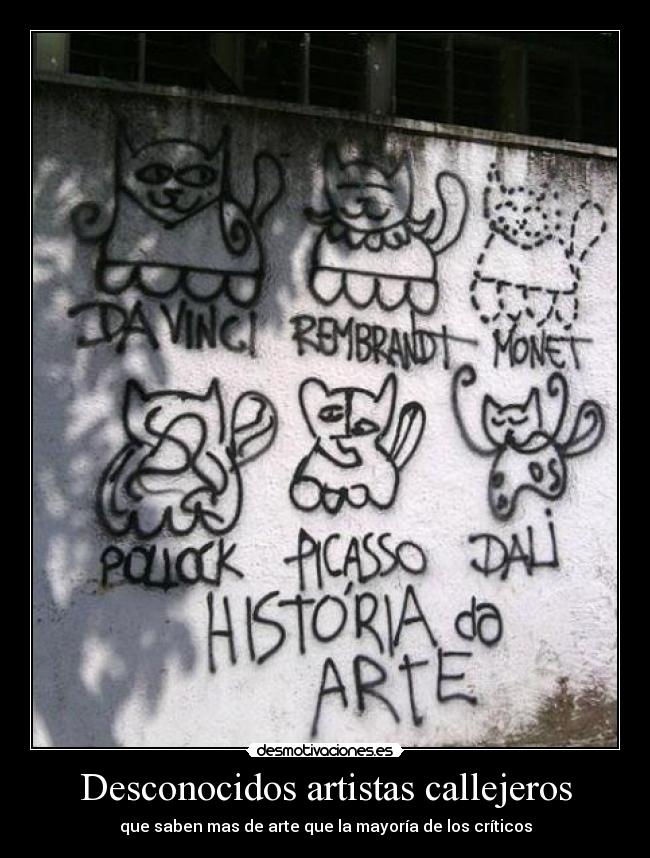 DA VINCI REMBRANDT MONET
POLLOCK PICASSO DALI
HISTÓRIA da
ARTE
desmotivaciones.es
Desconocidos artistas callejeros
que saben mas de arte que la mayoría de los críticos